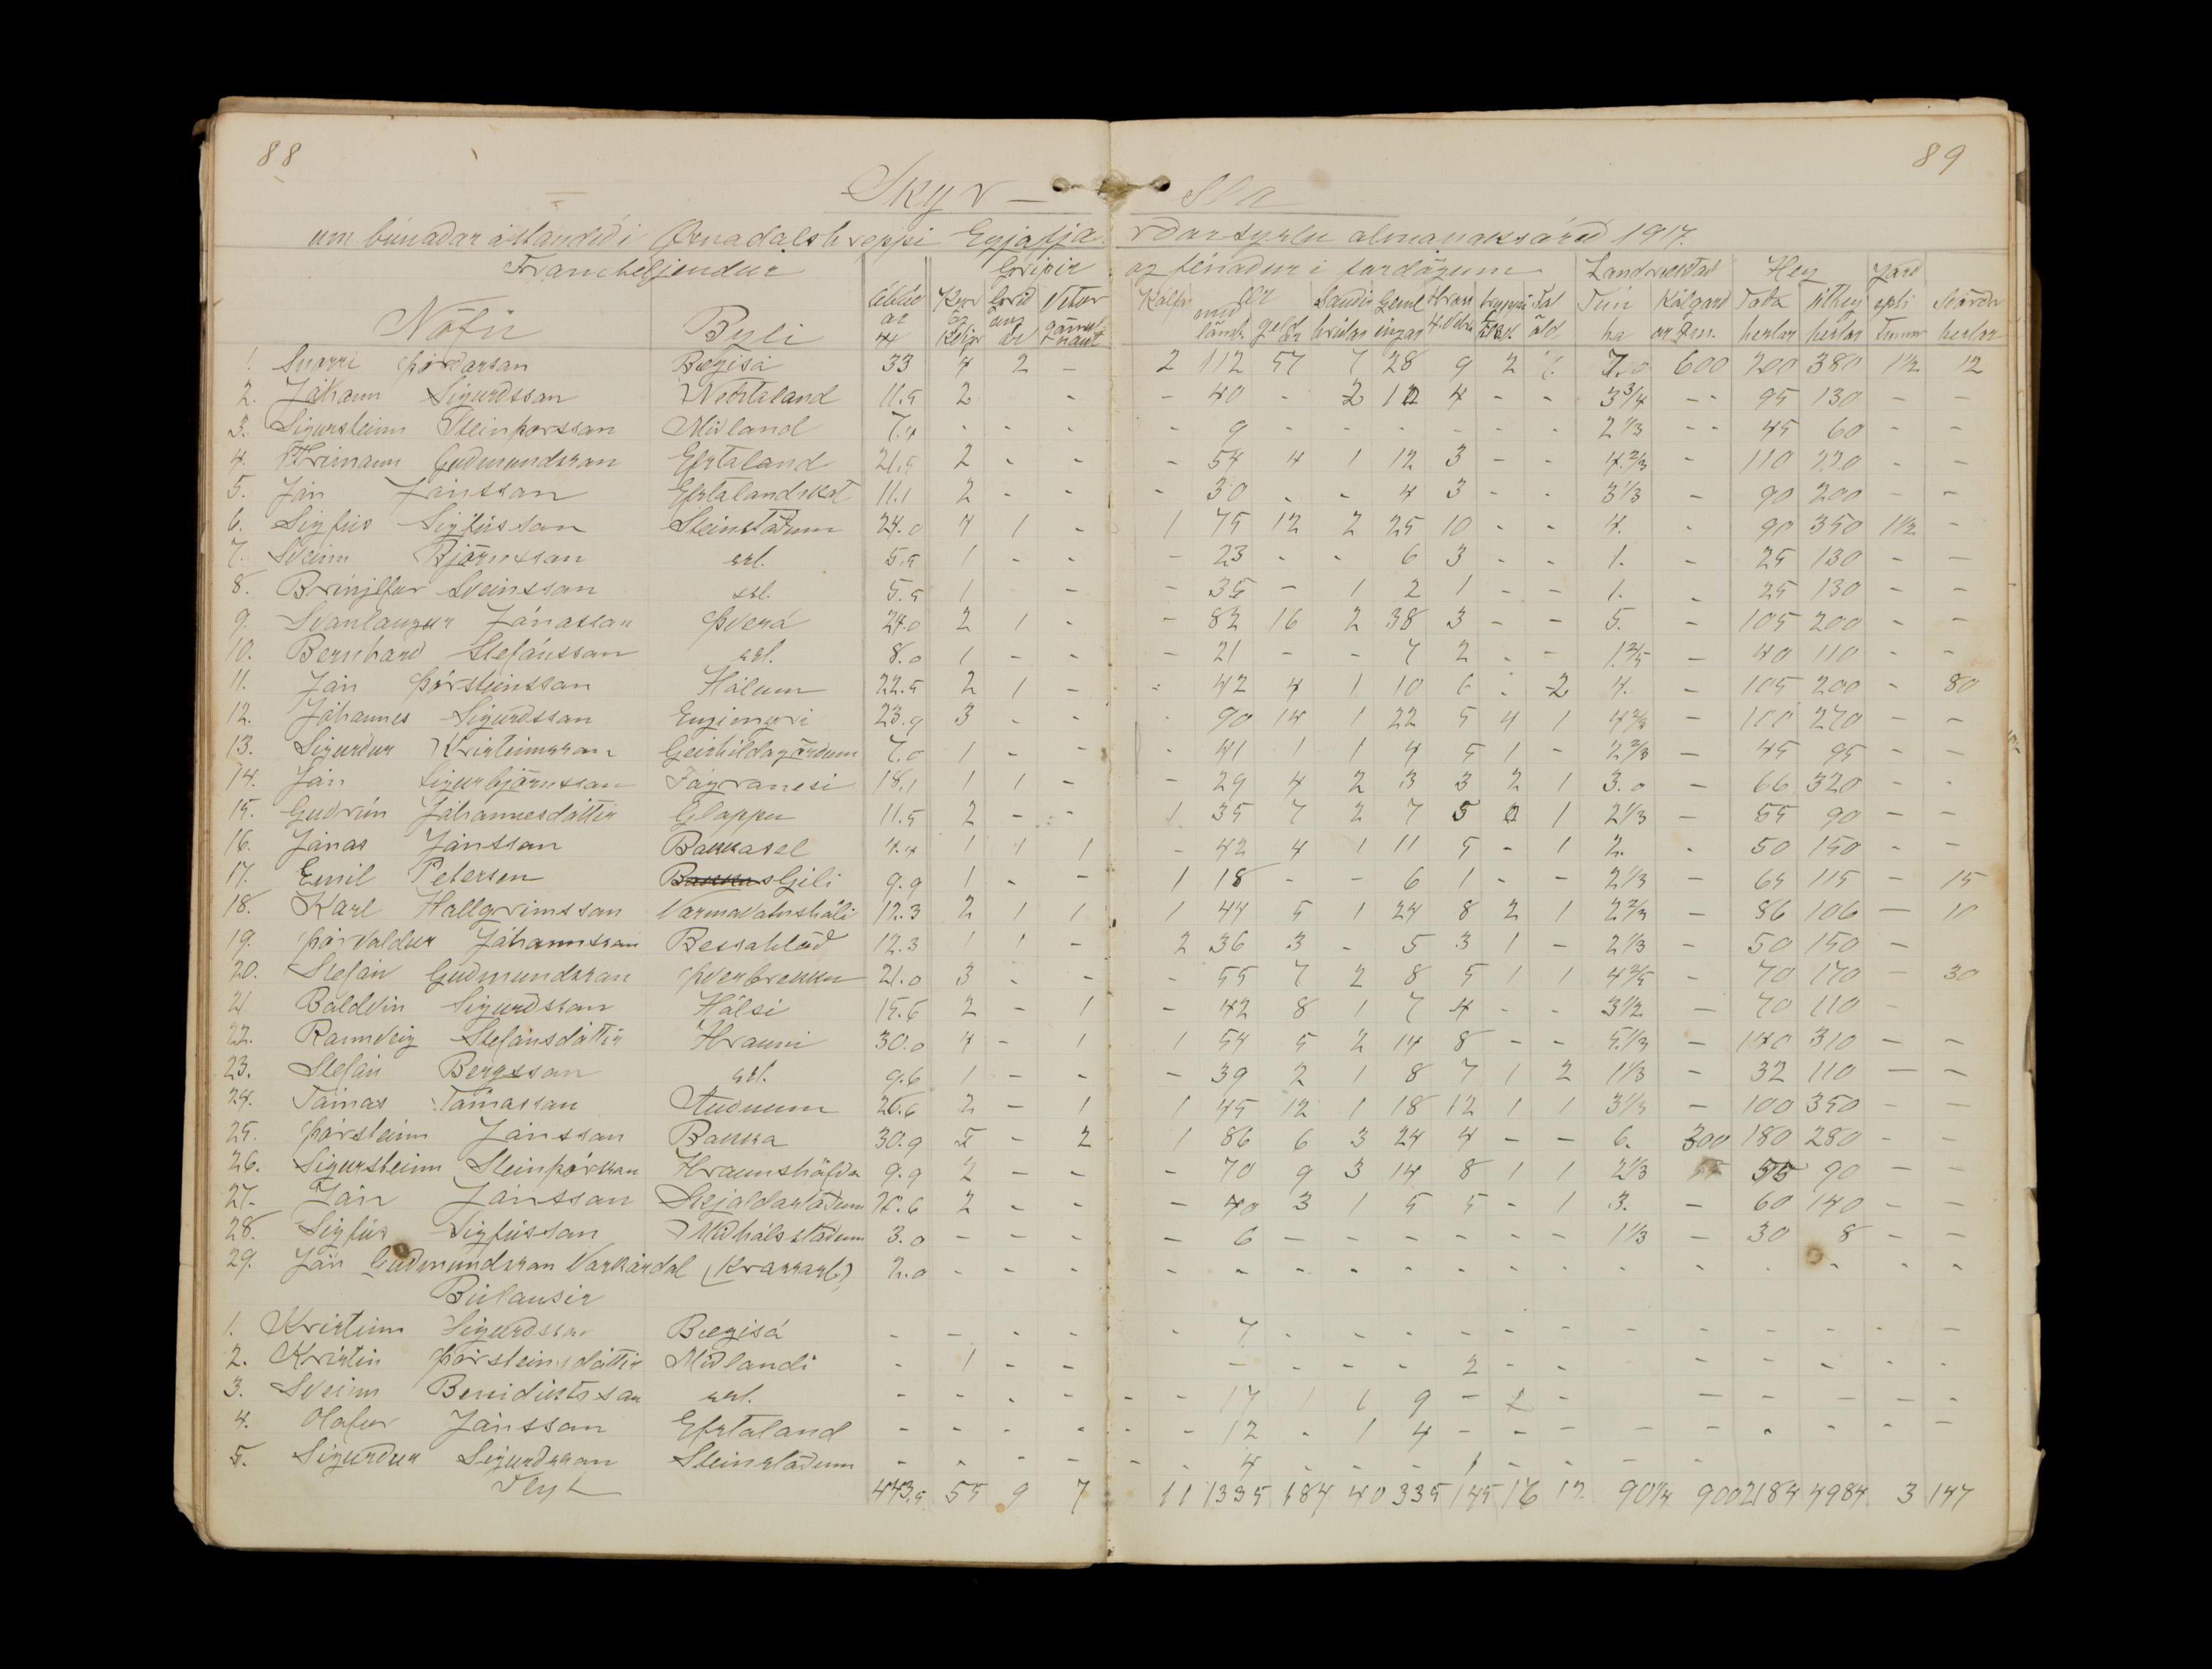 88
89
Skyr — sla
um búnaðarástandið í Öxnadalshreppi Eyjafjarðarsýslu almanaksárið 1917.
Framteljendur Gripir og fénaður í fardögum Landræktað Hey Jarð
Nöfn Byli Kýr og Kelfur Kálfar Ær með lömb. geld ær Tún ha Kálgarð Taða hestar úthey hestar epli Tunnur Mórða hestar
1. Snorri Þórðarson Bægisá 33 4 2 - 2 112 57 7 28 9 2 7.0 600 200 380 1½ 12
2. Jóhann Sigurðsson Neðstaland 11.5 2 - - 40 - 2 12 4 - - 3¾ -- 95 130 - -
3. Sigursteinn Steinþorsson Miðland 7.4 - - - - 9 - - - - - - 2⅓ -- 45 60 - -
4. Hrimann Guðmundsson Efstaland 21.5 2 - - - 54 4 1 12 3 - - 4⅔ - 110 220 - -
5. Jón Jónsson Efstalandskot 11.1 2 - - - 30 - - 4 3 - - 3⅓ - 90 200 - -
6. Sigfús Sigfússon Steinstöðum 24.0 4 1 - 1 75 12 2 25 10 - - 4. - 90 350 1½ -
7. Sveinn Björnsson 5.5 1 - - - 23 - - 6 3 - - 1. - 25 130 - -
8. Brinjlfur Sveinsson 5.5 1 - - 35 - 1 2 1 - - 1. - 25 130 - -
9. Svanlaugur Jónasson Þverá 24.0 2 1 - - 82 16 2 38 3 - - 5. - 105 200 - -
10. Bernhard Stefánsson 8.0 1 - - - 21 - - 7 2 - - 1⅖ - 40 110 - -
11. Jón Þórsteinsson Hólum 22.5 2 1 - - 42 4 1 10 6 - 2 4. - 105 200 - 80
12. Jóhannes Sigurðsson Engimýri 23.9 3 - - - 90 14 1 22 5 4 1 4⅔ - 100 270 - -
13. Sigurður Kristinsson Geirhildagörðum 7.0 1 - - - 41 1 1 4 5 1 - 2⅔ - 45 95 - -
14. Jón Sigurbjörnsson Fagranesi 18.1 1 1 - - 29 4 2 3 3 2 1 3.0 - 66 320 - -
15. Guðrún Jóhannesdóttir Gloppu 11.5 2 - - 1 35 7 2 7 5 2 1 2⅓ - 55 90 - -
16. Jónas Jónsson Bakkasel 4.4 1 1 1 - 42 4 1 11 5 - 1 2. - 50 150 - -
17. Emil Petersen Gili 9.9 1 - - 1 18 - - 6 1 - - 2⅓ - 65 115 - 15
18. Karl Hallgrimsson Varmavatnshóli 12.3 2 1 1 1 44 5 1 24 8 2 1 2⅔ - 86 106 - 10
19. Þórvaldur Jóhannsson Bessahlöð 12.3 1 1 - 2 36 3 - 5 3 1 - 2⅓ - 50 150 -
20. Stefán Guðmundsson Þverbrekku 21.0 3 - - - 55 7 2 8 5 1 1 4⅖ - 70 170 - 30
21. Baldvin Sigurðsson Hálsi 15.6 2 - 1 - 42 8 1 7 4 - - 3½ - 70 110 -
22. Rannveig Stefánsdóttir Hrauni 30.0 4 - 1 1 54 5 2 14 8 - - 5⅓ - 140 310 - -
23. Stefán Bergsson 9.6 1 - - - 39 2 1 8 7 1 2 1⅓ - 32 110 - -
24. Tómas Tómasson Auðnum 26.6 2 - 1 1 45 12 1 18 12 1 1 3⅓ - 100 350 - -
25. Þórsteinn Jónsson Bakka 30.9 5 - 2 1 86 6 3 24 4 - - 6. 300 180 280 - -
26. Sigursteinn Steinþórsson Hraunshöfða 9.9 2 - - - 70 9 3 14 8 1 1 2⅓ 55 90 - -
27. Jón Jónsson Skjaldarstöðum 2 - - - 40 3 1 5 5 - 1 3. - 60 140 - -
28. Sigfús Sigfússon Miðhálsstöðum 3.0 - - - - 6 - - - - - - 1⅓ - 30 8 - -
29. Jón Guðmundsson Vaskárdal 2.0 - - - - - - - - - - - - - - - - -
Búlausir
1. Kristinn Sigurðsson Bægisá - - - - - 7 - - - - - - - - - - - -
2. Kristín Þórsteinsdóttir Miðlandi - 1 - - - - - - 2 - - - - - - -
3. Sveinn Benidiktsson - - - - - 17 1 1 9 - - - - - - -
4. Olafur Jónsson Efstaland - - - - - 12 - 1 4 - - - - - - - - -
5. Sigurður Sigurðsson Steinstöðum - - - - - 4 - - - 1 - - - - - - -
Flyt 443.5 55 9 7 11 1335 184 40 335 145 16 17 90¼ 900 2184 4984 3 147